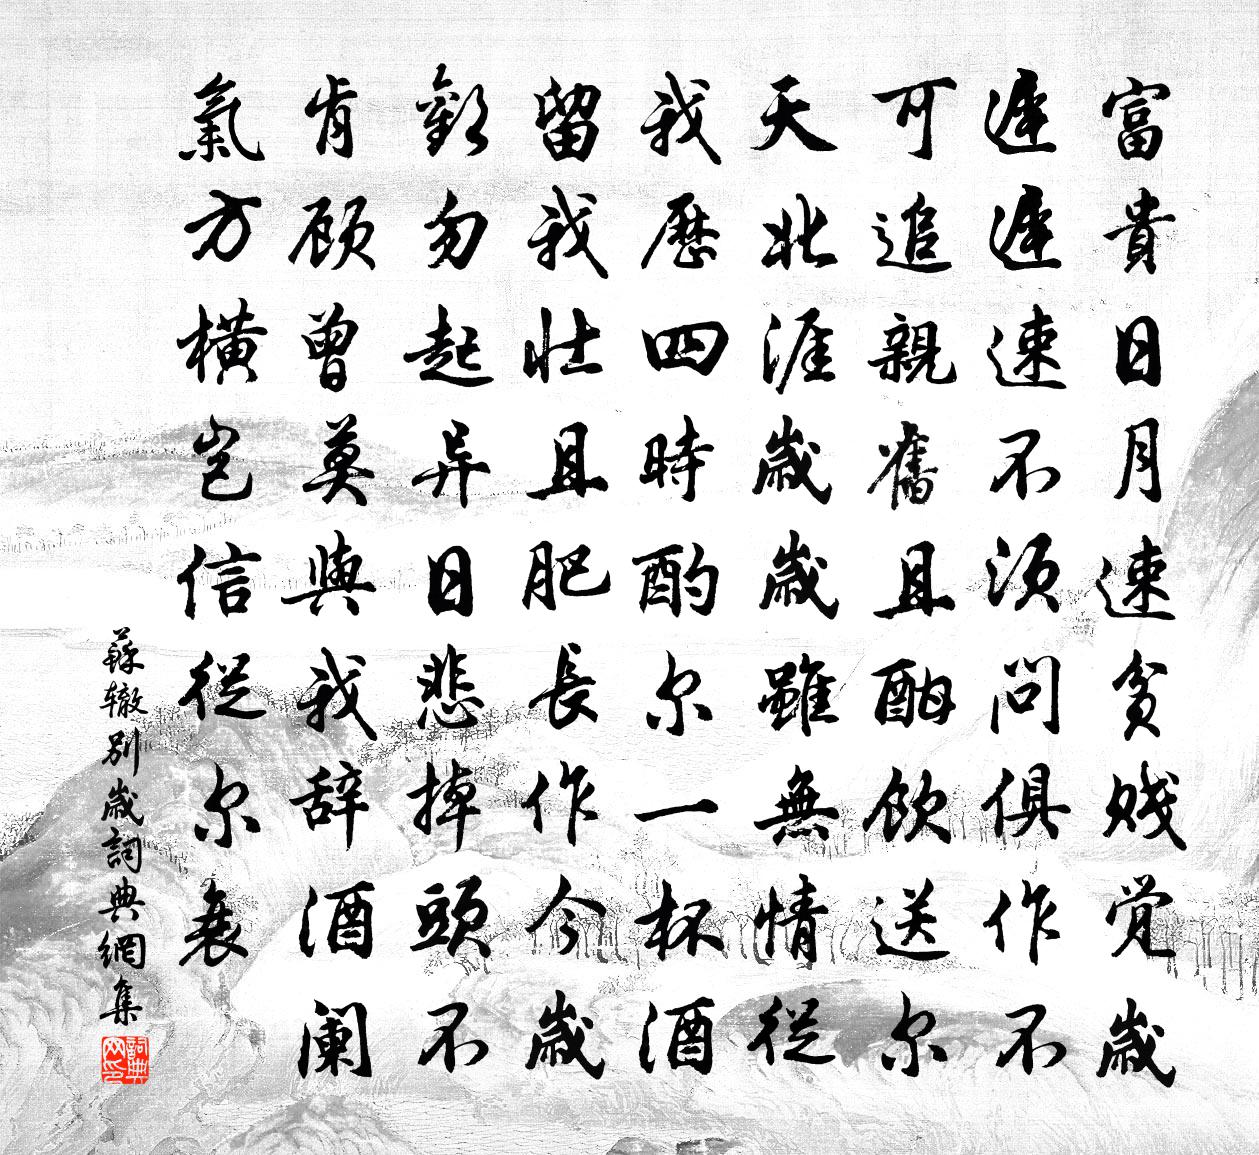 富貴日月速貧賤觉歲
遲遲速不須問俱作不
可追親舊且酣飲送尔
天北涯歲歲雖無情從
我歷四時酌尔一杯酒
留我壯且肥長作今歲
勸勿起异日悲掉頭不
肯顾曾莫與我辞酒阑
氣方橫豈信從尔衰
蘇辙别歲詞典網集
詞典网印